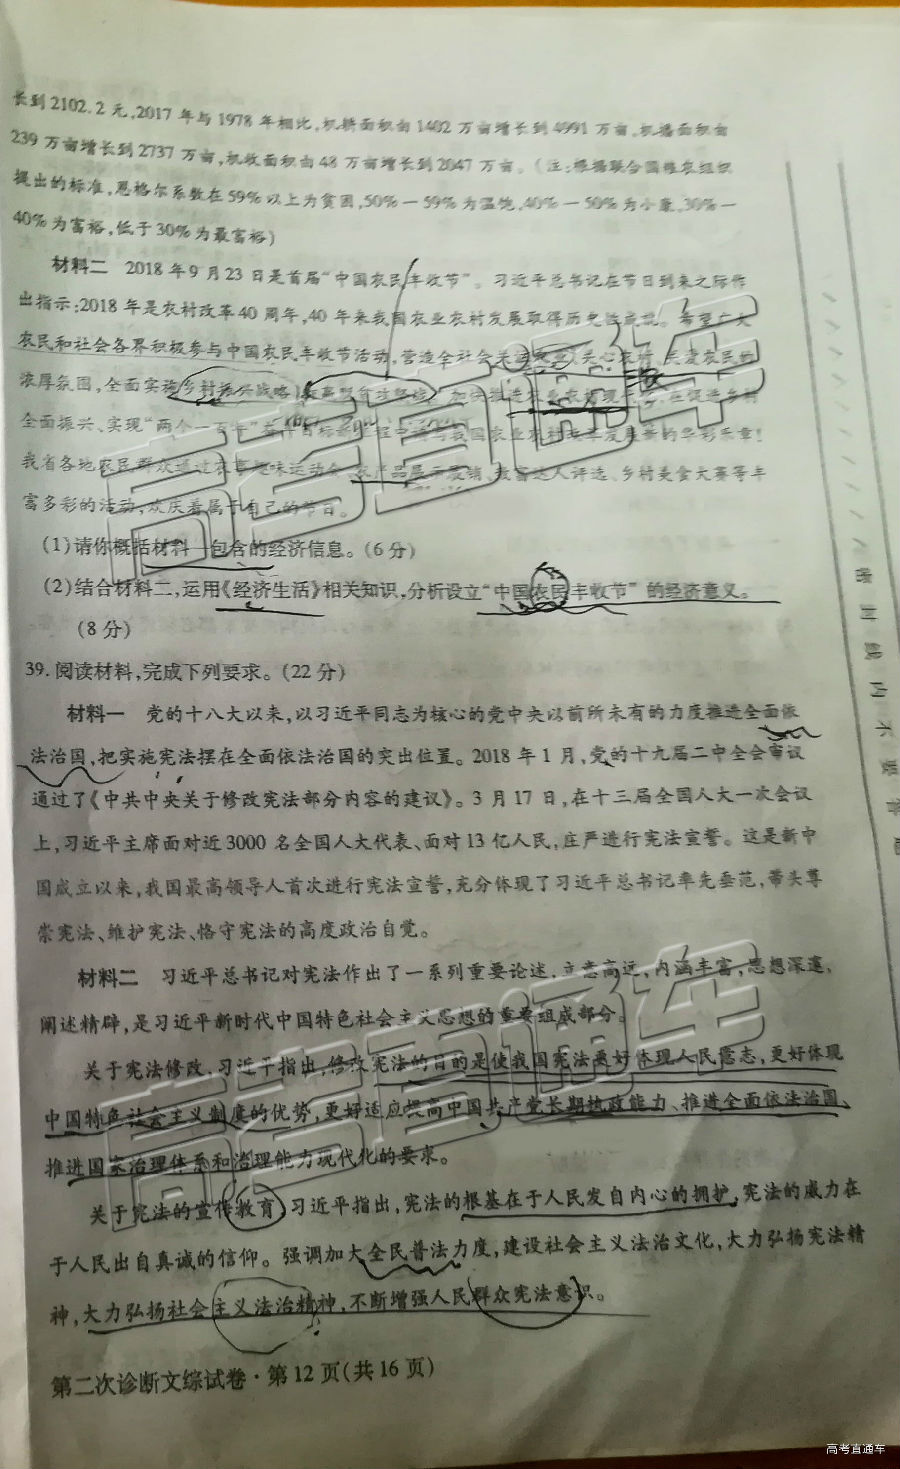 长到2102.2元,2017年与1978年相比,机耕面积由1402万亩增长到4991万亩,机播面积由
239万亩增长到2737万亩,机收面积由48万亩增长到2047万亩。(注:根据联合国粮农组织
提出的标准,恩格尔系数在59%以上为贫困,50%—59%为温饱,40%—50%为小康,30%—
40%为富裕,低于30%为最富裕)
材料二 2018年9月23日是首届“中国农民丰收节”。习近平总书记在节日到来之际作
出指示:2018年是农村改革40周年,40年来我国农业农村发展取得历史性成就。希望广大
农民和社会各界积极参与中国农民丰收节活动,营造全社会关注农业、关心农村、关爱农民的
浓厚氛围,全面实施乡村振兴战略,打赢脱贫攻坚战,加快推进农业农村现代化,在促进乡村
全面振兴、实现“两个一百年”奋斗目标新征程中谱写我国农业农村改革发展新的华彩乐章!
我省各地农民群众通过农事趣味运动会、农产品展示展销、致富达人评选、乡村美食大赛等丰
富多彩的活动,欢庆着属于自己的节日。
(1)请你概括材料一包含的经济信息。(6分)
(2)结合材料二,运用《经济生活》相关知识,分析设立“中国农民丰收节”的经济意义。
(8分)
39.阅读材料,完成下列要求。(22分)
材料一 党的十八大以来,以习近平同志为核心的党中央以前所未有的力度推进全面依
法治国,把实施宪法摆在全面依法治国的突出位置。2018年1月,党的十九届二中全会审议
通过了《中共中央关于修改宪法部分内容的建议》。3月17日,在十三届全国人大一次会议
上,习近平主席面对近3000名全国人大代表、面对13亿人民,庄严进行宪法宣誓。这是新中
国成立以来,我国最高领导人首次进行宪法宣誓,充分体现了习近平总书记率先垂范,带头尊
崇宪法、维护宪法、恪守宪法的高度政治自觉。
材料二 习近平总书记对宪法作出了一系列重要论述,立意高远,内涵丰富,思想深邃,
阐述精辟,是习近平新时代中国特色社会主义思想的重要组成部分。
关于宪法修改,习近平指出,修改宪法的目的是使我国宪法更好体现人民意志,更好体现
中国特色社会主义制度的优势,更好适应提高中国共产党长期执政能力、推进全面依法治国、
推进国家治理体系和治理能力现代化的要求。
关于宪法的宣传教育,习近平指出,宪法的根基在于人民发自内心的拥护,宪法的威力在
于人民出自真诚的信仰。强调加大全民普法力度,建设社会主义法治文化,大力弘扬宪法精
神,大力弘扬社会主义法治精神,不断增强人民群众宪法意识。
第二次诊断文综试卷·第12页(共16页)
密封线内不要答题
高考直通车
高考直通车
高考直通车